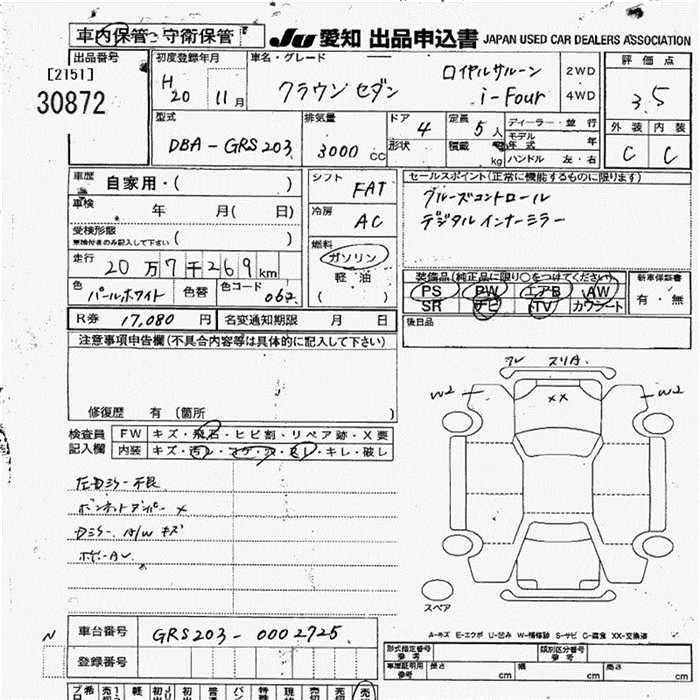 車内保管・守衛保管 JU 愛知 出品申込書 JAPAN USED CAR DEALERS ASSOCIATION
出品番号 初度登録年月 車名・グレード 評価点
[2151] H ロイヤルサルーン 2WD
30872 20 11月 クラウン セダン i-Four 4WD 3.5
型式 排気量 ドア 定員 ディーラー・並行 外装 内装
DBA-GRS203 3000cc 4 5人 モデル 年式 年
形状 積載 kg ハンドル 左・右 C C
車歴 自家用・( ) シフト FAT セールスポイント(正常に機能するものに限ります)
車検 年 月( 日) 冷房 AC クルーズコントロール
受検形態 デジタルインナーミラー
車検付きのみ記入して下さい ( ) 燃料
走行 20万7千269km ガソリン 装備品(純正品に限り○をつけてください) 新車保証書
色 パールホワイト 色替 色コード 062 軽・油 PS PW エアB AW 有・無
( ) SR ナビ TV カワシート
R券 17,080円 名変通知期限 月 日 後日品
注意事項申告欄(不具合内容等は具体的に記入して下さい)
修復歴 有 (箇所 )
W2 XX W2
検査員 FW キズ・飛石・ヒビ割・リペア跡・X要
記入欄 内装 キズ・汚レ・コゲ・穴・スレ・キレ・破レ
左Dミラー不良
ボンネットダンパーX
Dミラー、A/Wキズ
スペア
A-キズ E-エクボ U-凹み W-補修跡 S-サビ C-腐食 XX-交換済
N 車台番号 GRS203-0002725
登録番号
形式指定番号 参考 類別区分番号 参考
車庫証明用 参考 長さ cm 幅 cm 高さ cm